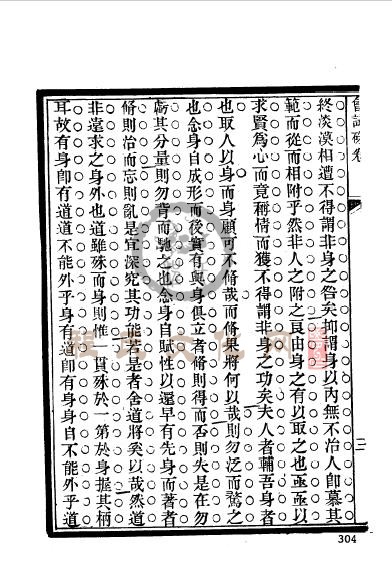 會試硃卷
終淡漠相遺不得謂非身之咎矣抑謂身以內無不治人卽慕其
範而從而相附乎然非人之附之良由身之有以取之也亟亟以
求賢爲心而竟稱情而獲不得謂非身之功矣夫人者輔吾身者
也取人以身而身顧可不脩哉而脩果將何以哉則勿泛而騖之
也念身自成形而後實有與身俱立者脩則得而否則失是在勿
虧其分量則勿背而馳之也念身自賦性以還早有先身而著者
脩則治而忘則亂是宜深究其功能若是者舍道將奚以哉然道
非遠求之身外也道雖殊而身則惟一貫殊於一第於身握其柄
耳故有身卽有道道不能外乎身有道卽有身身自不能外乎道
304